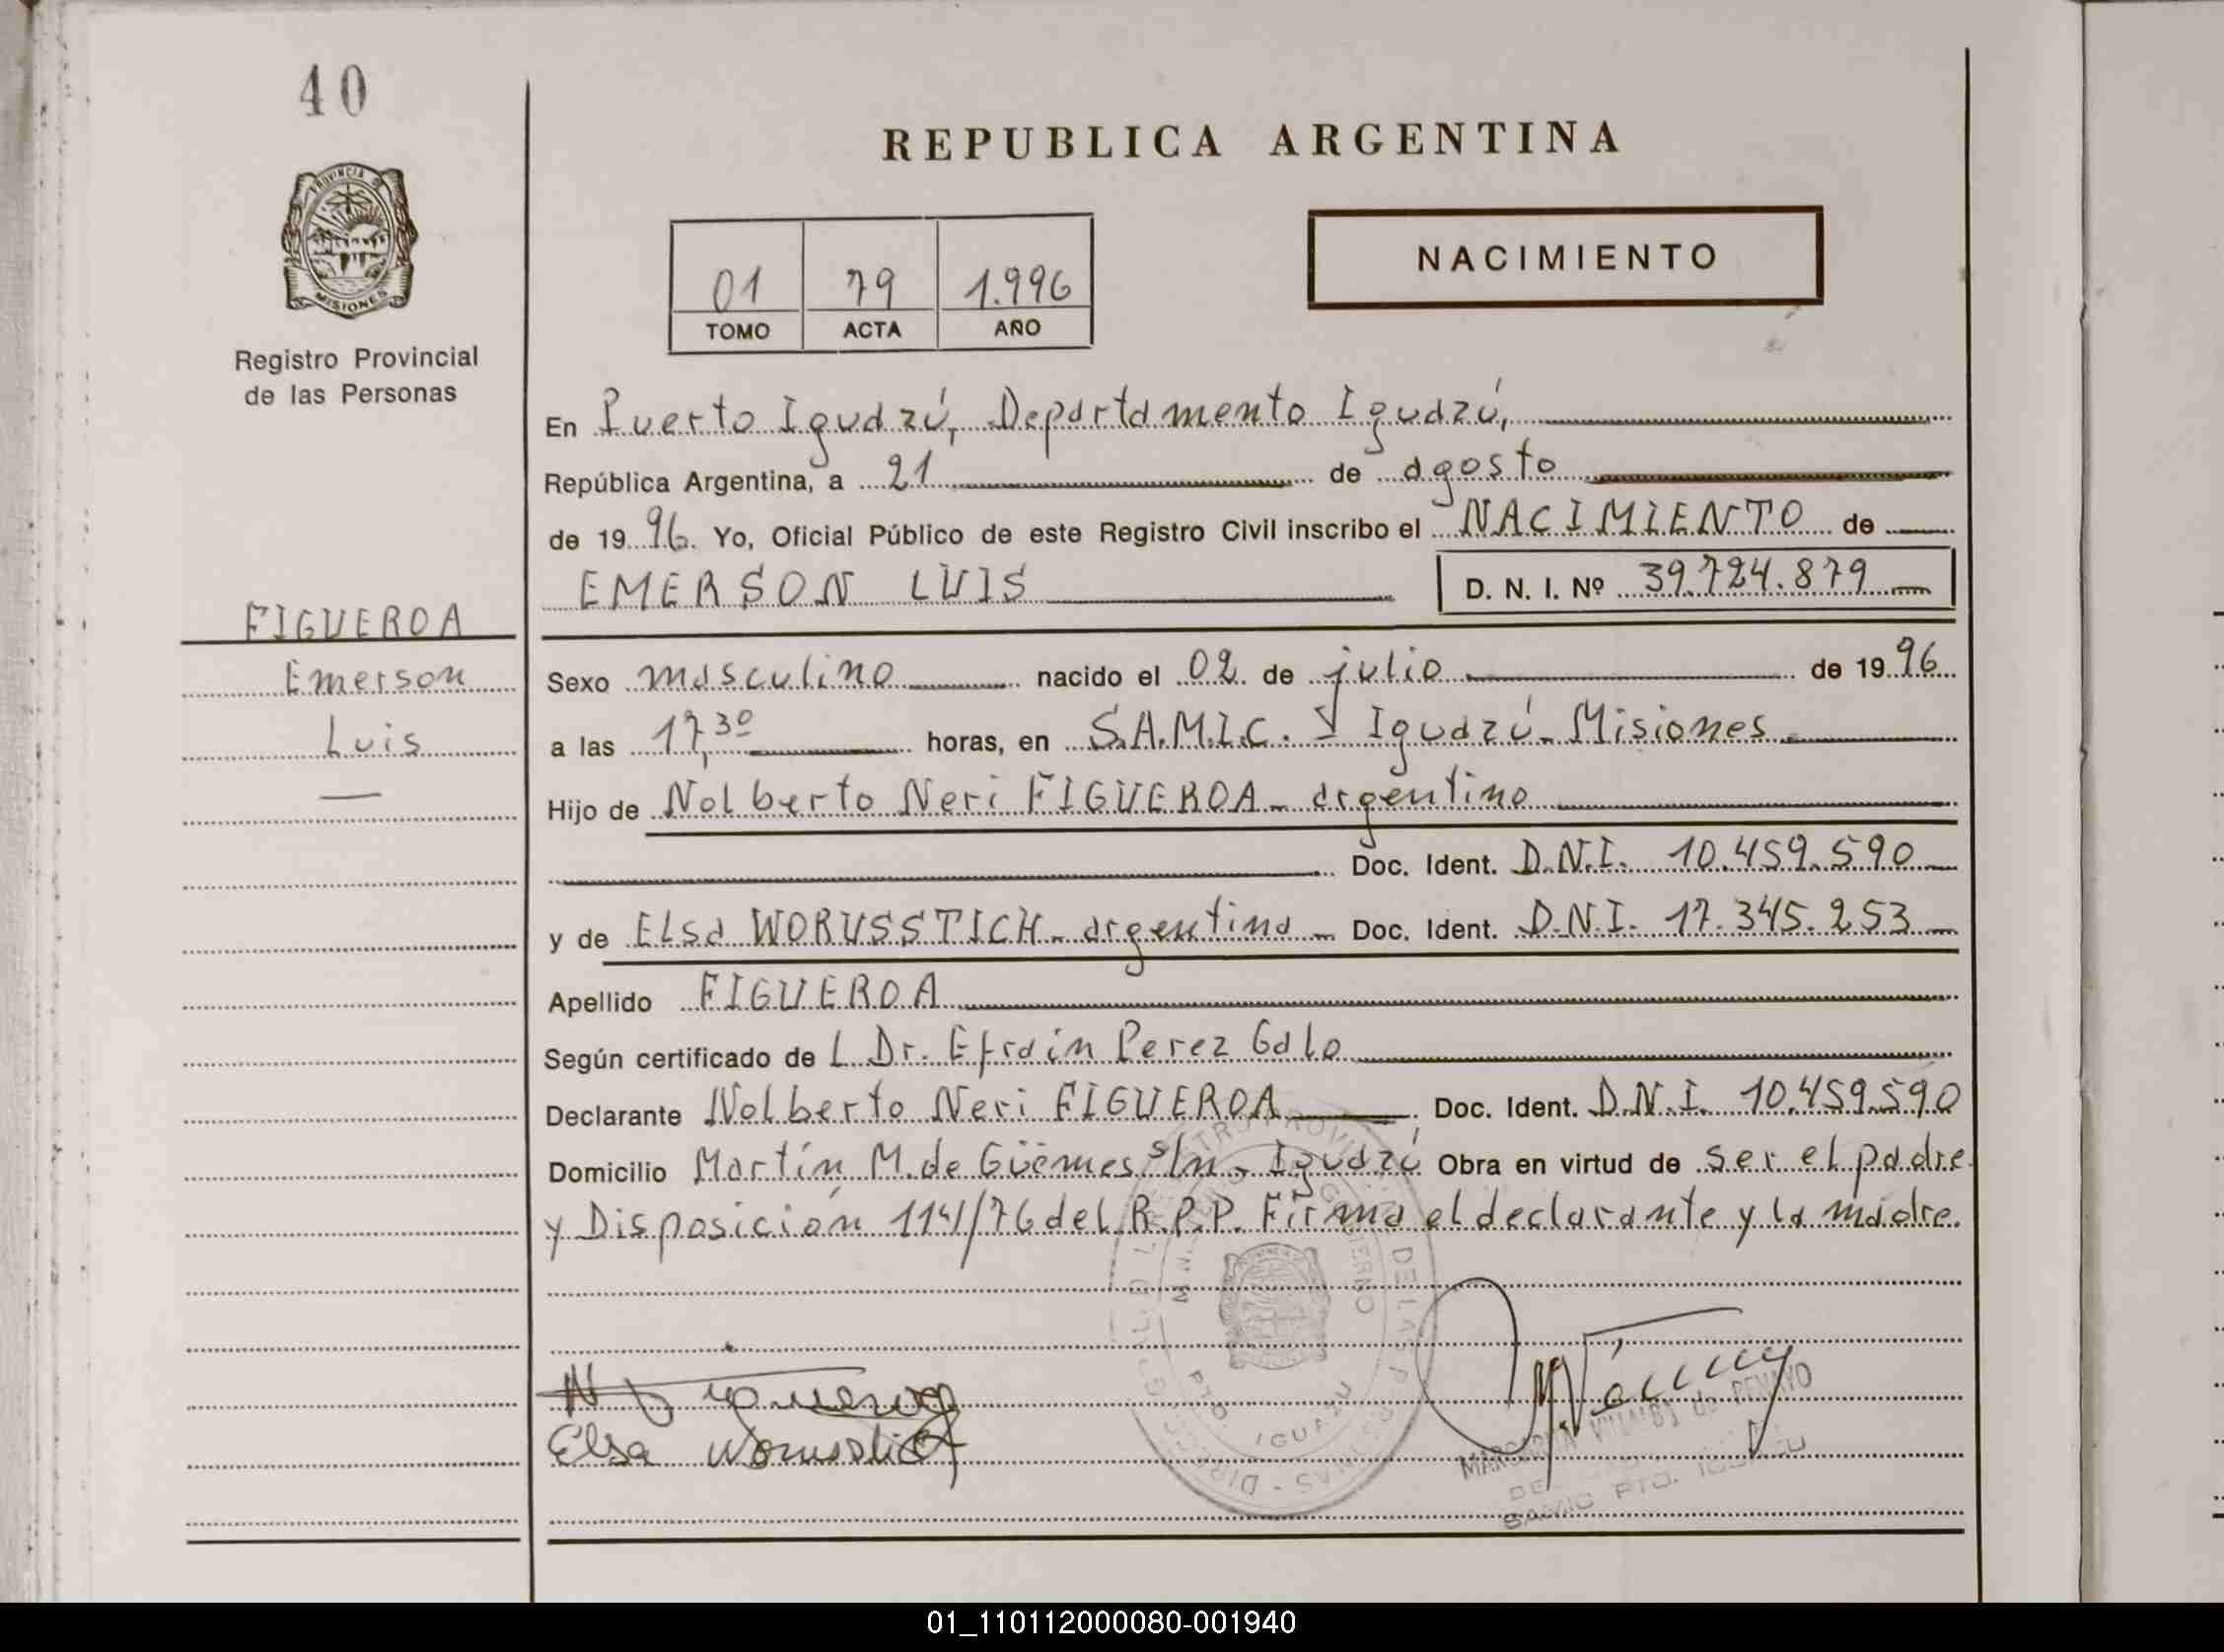 40
REPUBLICA ARGENTINA
PROVINCIA DE
MISIONES
Registro Provincial
de las Personas
NACIMIENTO
01 79 1.996
TOMO ACTA AÑO
En Puerto Iguazú, Departamento Iguazú,
República Argentina, a 21 de agosto
de 1996. Yo, Oficial Público de este Registro Civil inscribo el NACIMIENTO de
EMERSON LUIS D. N. I. Nº 39.724.879
FIGUEROA
Emerson
Luis
Sexo masculino nacido el 02 de julio de 1996
a las 17,30 horas, en S.A.M.I.C. Iguazú - Misiones
Hijo de Nolberto Neri FIGUEROA - argentino
Doc. Ident. D.N.I. 10.459.590
y de Elsa WORUSSTICH - argentina - Doc. Ident. D.N.I. 17.345.253
Apellido FIGUEROA
Según certificado de L Dr. Efrain Perez Galo
Declarante Nolberto Neri FIGUEROA Doc. Ident. D.N.I. 10.459.590
Domicilio Martín M. de Güemes s/n - Iguazú Obra en virtud de ser el padre
y Disposición 1141/76 del R.P.P. Firma el declarante y la madre.
Elsa Worusstich
PTO. IGUAZU
MARGARITA VILLALBA de PENAYO
SAMIC PTO. IGUAZU
01_110112000080-001940